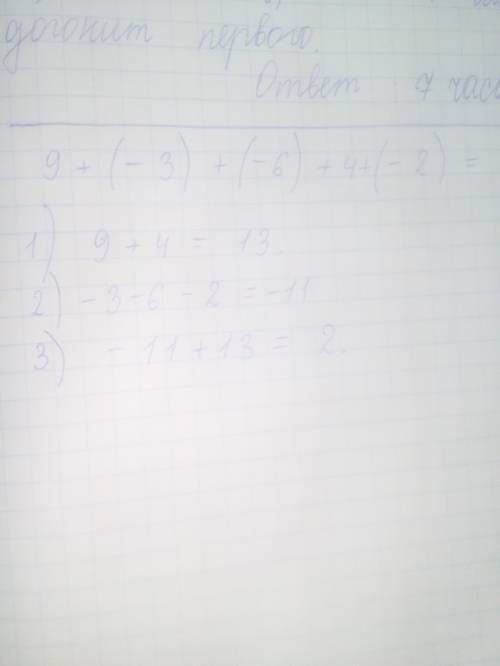 догонит первого.
Ответ 7 часо
9 + (- 3) + (-6) + 4+(- 2) =
1) 9 + 4 = 13.
2) - 3 - 6 - 2 = -11
3) - 11 + 13 = 2.